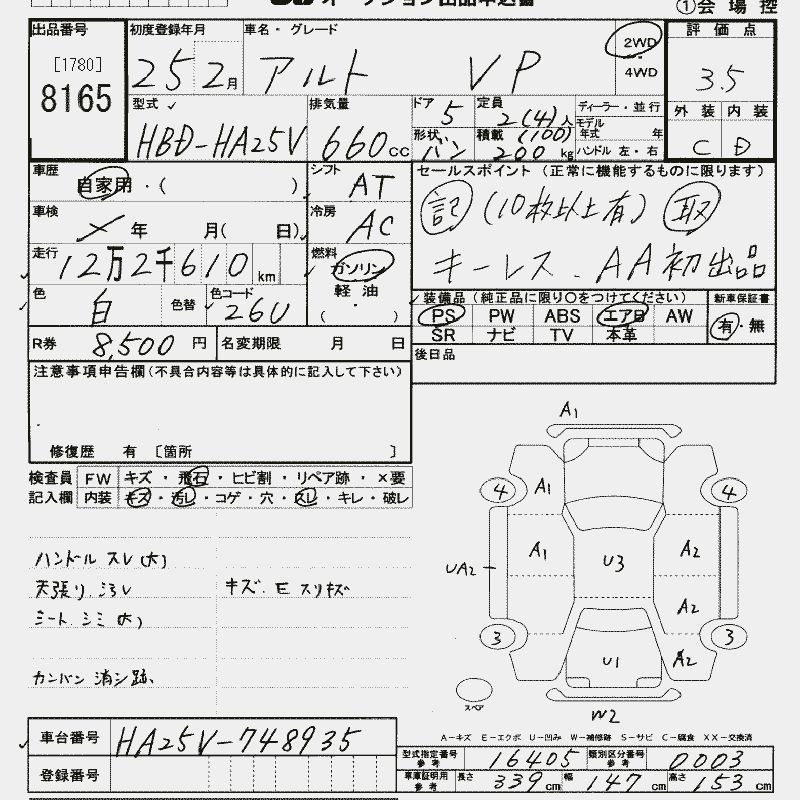 ①会場控
出品番号
[1780]
8165
初度登録年月
25 2月
車名・グレード
アルト VP
2WD
4WD
評価点
3.5
型式
HBD-HA25V
排気量
660cc
ドア 5
定員 2(4)人
形状 バン
積載 (100) 200kg
ディーラー・並行
モデル年式 年
ハンドル 左・右
外装 内装
C D
車歴
自家用・( )
シフト
AT
車検
年 月( 日)
冷房
AC
走行
12万2千610km
燃料
ガソリン・軽油
( )
色
白
色替
色コード
26U
R券 8,500円
名変期限 月 日
セールスポイント(正常に機能するものに限ります)
記 (10枚以上有) 取
キーレス.AA初出品
装備品(純正品に限り○をつけてください)
PS PW ABS エアB AW
SR ナビ TV 本革
新車保証書
有・無
後日品
注意事項申告欄(不具合内容等は具体的に記入して下さい)
修復歴 有 [箇所 ]
検査員 FW キズ・飛石・ヒビ割・リペア跡・×要
記入欄 内装 キズ・汚レ・コゲ・穴・スレ・キレ・破レ
ハンドル スレ(大)
天張り.ヨゴレ
キズ.E スリキズ
シート.シミ(大)
カンバン 消シ跡、
A1
4 A1 4
A1 U3 A2
UA2
A2
3 U1 A2 3
スペア
W2
A-キズ E-エクボ U-凹み W-補修跡 S-サビ C-腐食 XX-交換済
車台番号 HA25V-748935
登録番号
型式指定番号 参考 16405
類別区分番号 参考 0003
車庫証明用 参考 長さ 339cm 幅 147cm 高さ 153cm